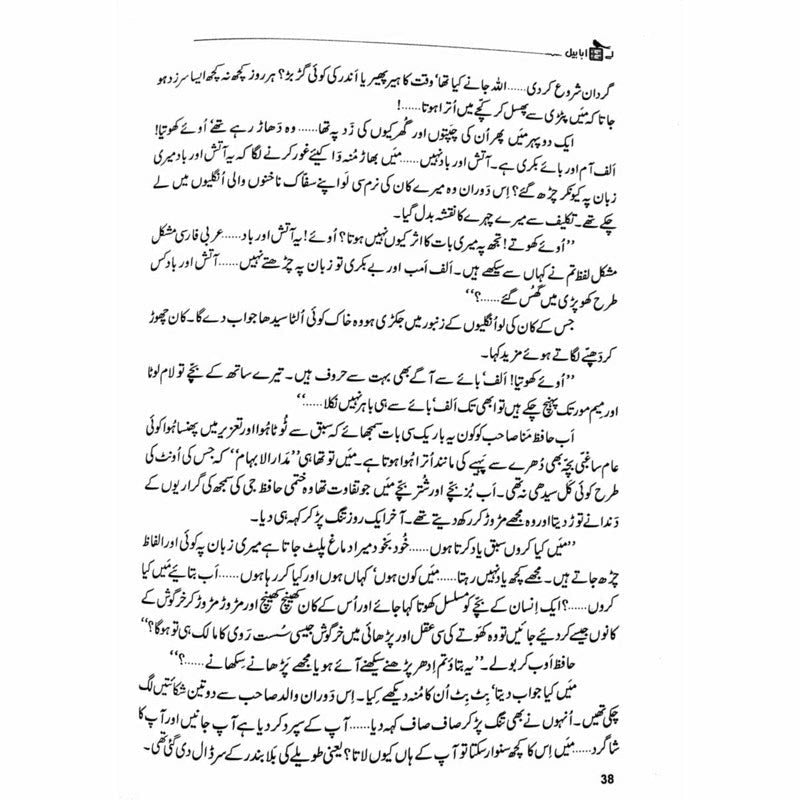 لے ابابیل
گردان شروع کر دی...... اللہ جانے کیا تھا' وقت کا ہیر پھیر یا اَندر کی کوئی گڑ بڑ؟ ہر روز کچھ نہ کچھ ایسا سرزد ہو
جاتا کہ میَں پٹڑی سے پھسل کر کچے میں اُترا ہوتا......!
ایک دوپہر میَں پھر اُن کی چَپتوں اور گُھرکیوں کی زَد پہ تھا...... وہ دَھاڑ رہے تھے' اُوئے کھوتیا!
اَلف آم اور بائے بکری ہے۔ آتش اور باد نہیں...... میَں بھاڑ مُنہ وَا کیئے غور کرنے لگا کہ یہ آتش اور باد میری
زبان پہ کیونکر چڑھ گئے؟ اِس دَوران وہ میرے کان کی نرم سی لَو اپنے سفاک ناخنوں والی اُنگلیوں میں لے
چکے تھے۔ تکلیف سے میرے چہرے کا نقشہ بدل گیا۔
''اُوئے کھوتے! تجھ پہ میری بات کا اثر کیوں نہیں ہوتا؟ اُوئے! یہ آتش اور باد...... عربی فارسی مشکل
مشکل لفظ تم نے کہاں سے سیکھے ہیں۔ اَلف اَمب اور بے بکری تو زبان پہ چڑھتے نہیں...... آتش اور باد کس
طرح کھوپڑی میں گُھس گئے......؟''
جس کے کان کی لو اُنگلیوں کے زنبور میں جکڑی ہو وہ خاک کوئی اُلٹا سیدھا جواب دے گا۔ کان چھوڑ
کر دَھپّے لگاتے ہوئے مزید کہا۔
''اُوئے کھوتیا! اَلف' بائے سے آگے بھی بہت سے حروف ہیں۔ تیرے ساتھ کے بچّے تو لام لوٹا
اور میم مور تک پہنچ چکے ہیں تو ابھی تک اَلف' بائے سے ہی باہر نہیں نکلا......''
اَب حافظ مَنا صاحب کو کون یہ باریک سی بات سمجھائے کہ سبق سے ٹُوٹا ہُوا اور تعزیر میں پھنسا ہُوا کوئی
عام سا غبّی بچّہ بھی دُھرے سے پہیے کی مانند اُترا ہُوا ہوتا ہے۔ میَں تو تھا ہی ''مَدارالابہام'' کہ جس کی اُونٹ کی
طرح کوئی کَل سیدھی نہ تھی۔ اَب بُز بچّے اور شُتر بچّے میَں جو تفاوت تھا وہ ختمی حافظ جی کی سمجھ کی گراریوں کے
دَندانے توڑ دیتا اور وہ مجھے مروڑ کر رکھ دیتے تھے۔ آخر ایک روز تنگ پڑ کر کہہ ہی دیا۔
''میَں کیا کروں سبق یاد کرتا ہوں...... خُود بخود میرا دماغ پلٹ جاتا ہے میری زبان پہ کوئی اور الفاظ
چڑھ جاتے ہیں۔ مجھے کچھ یاد نہیں رہتا...... میَں کون ہوں' کہاں ہوں اور کیا کر رہا ہوں...... اَب بتائیے میَں کیا
کروں......؟ ایک اِنسان کے بچّے کو مسلسل کھوتا کہا جائے اور اُس کے کان کھینچ کھینچ اور مروڑ مروڑ کر خرگوش کے
کانوں جیسے کر دیئے جائیں تو وہ کھَوتے کی سی عقل اور پڑھائی میں خرگوش جیسی سُست رَوی کا مالک ہی تو ہوگا؟''
حافظ اُوب کر بولے۔ ''یہ بتاؤ تم اِدھر پڑھنے سیکھنے آئے ہو یا مجھے پَڑھانے سِکھانے......؟''
میَں کیا جواب دیتا' بِٹ بِٹ اُن کا مُنہ دیکھے کِیا۔ اِس دَوران والد صاحب سے دو تین شکائتیں لگ
چکی تھیں۔ اُنہوں نے بھی تنگ پڑ کر صاف صاف کہہ دیا...... آپ کے سپرد کر دیا ہے آپ جانیں اور آپ کا
شاگرد...... میَں اِس کا کچھ سنوار سکتا تو آپ کے ہاں کیوں لاتا؟ یعنی طویلے کی بَلا بندر کے سر ڈال دی گئی تھی۔
38